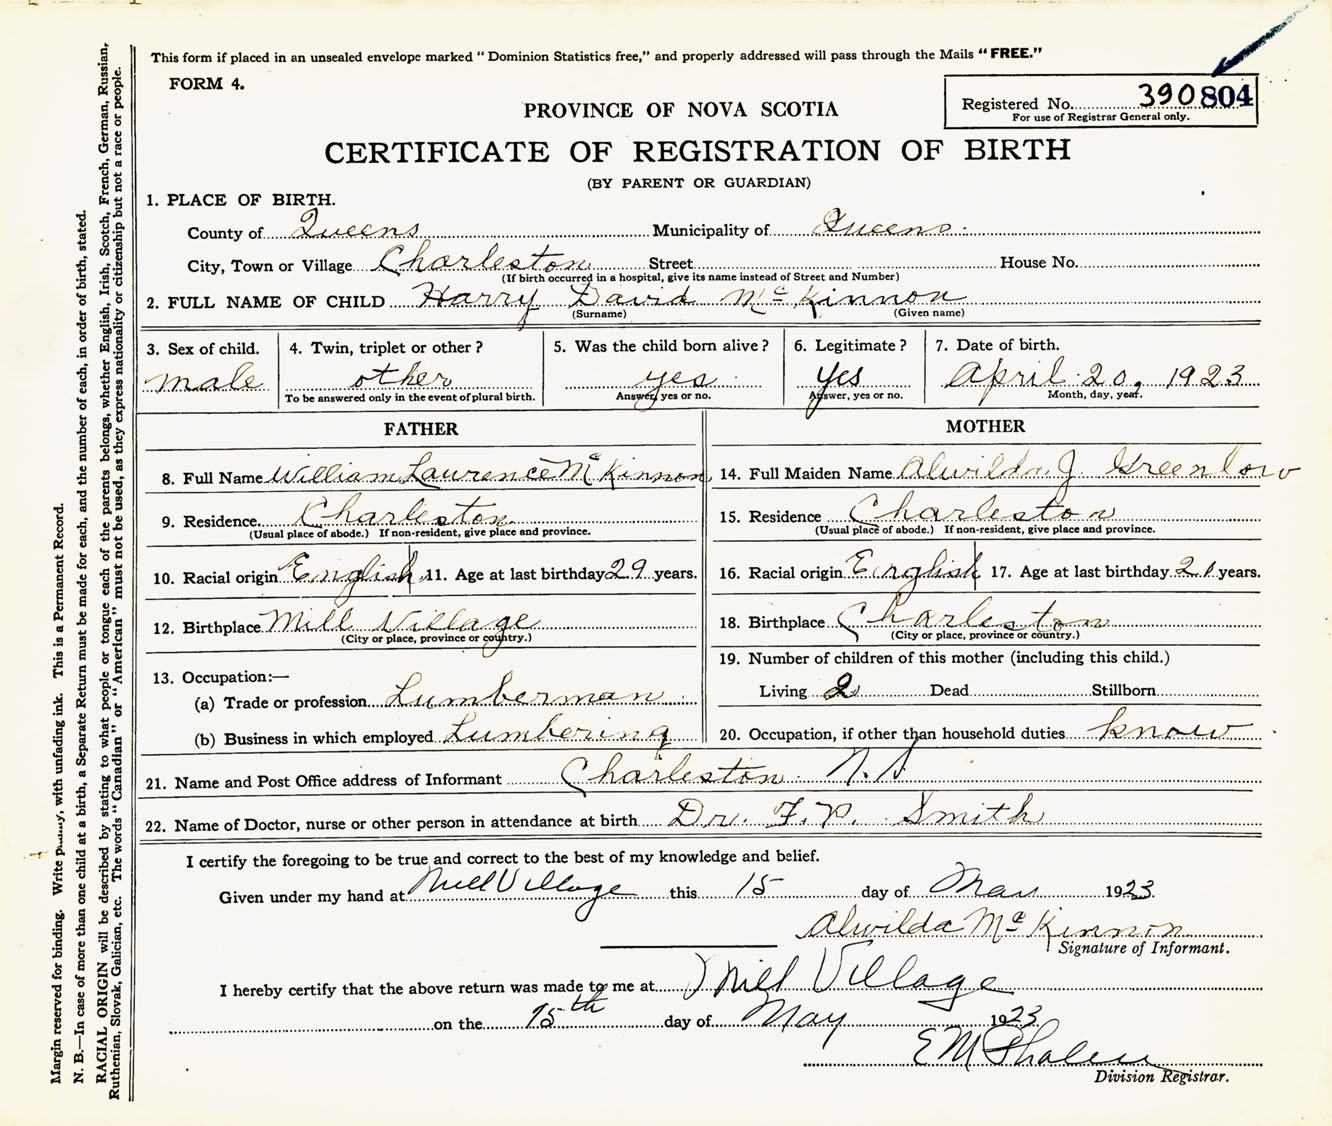 This form if placed in an unsealed envelope marked "Dominion Statistics free," and properly addressed will pass through the Mails "FREE."
FORM 4.
Registered No. 390804
For use of Registrar General only.
PROVINCE OF NOVA SCOTIA
CERTIFICATE OF REGISTRATION OF BIRTH
(BY PARENT OR GUARDIAN)
1. PLACE OF BIRTH.
County of Queens Municipality of Queens
City, Town or Village Charleston Street House No.
(If birth occurred in a hospital, give its name instead of Street and Number)
2. FULL NAME OF CHILD Harry David McKinnon
(Surname) (Given name)
3. Sex of child. male
4. Twin, triplet or other? other
To be answered only in the event of plural birth.
5. Was the child born alive? yes
Answer, yes or no.
6. Legitimate? Yes
Answer, yes or no.
7. Date of birth. April 20, 1923
Month, day, year.
FATHER
8. Full Name William Lawrence McKinnon
9. Residence Charleston
(Usual place of abode.) If non-resident, give place and province.
10. Racial origin English 11. Age at last birthday 29 years.
12. Birthplace Mill Village
(City or place, province or country.)
13. Occupation:—
(a) Trade or profession Lumberman
(b) Business in which employed Lumbering
MOTHER
14. Full Maiden Name Alwilda J. Greenlow
15. Residence Charleston
(Usual place of abode.) If non-resident, give place and province.
16. Racial origin English 17. Age at last birthday 21 years.
18. Birthplace Charleston
(City or place, province or country.)
19. Number of children of this mother (including this child.)
Living 2 Dead Stillborn
20. Occupation, if other than household duties know
21. Name and Post Office address of Informant Charleston N.S
22. Name of Doctor, nurse or other person in attendance at birth Dr. F. P. Smith
I certify the foregoing to be true and correct to the best of my knowledge and belief.
Given under my hand at Mill Village this 15 day of May 1923
Alwilda McKinnon
Signature of Informant.
I hereby certify that the above return was made to me at Mill Village
on the 15th day of May 1923
E M
Division Registrar.
Margin reserved for binding. Write with unfading ink. This is a Permanent Record.
N. B.—In case of more than one child at a birth, a Separate Return must be made for each, and the number of each, in order of birth, stated.
RACIAL ORIGIN will be described by stating to what people or tongue each of the parents belongs, whether English, Irish, Scotch, French, German, Russian,
Ruthenian, Slovak, Galician, etc. The words "Canadian" or "American" must not be used, as they express nationality or citizenship but not a race or people.